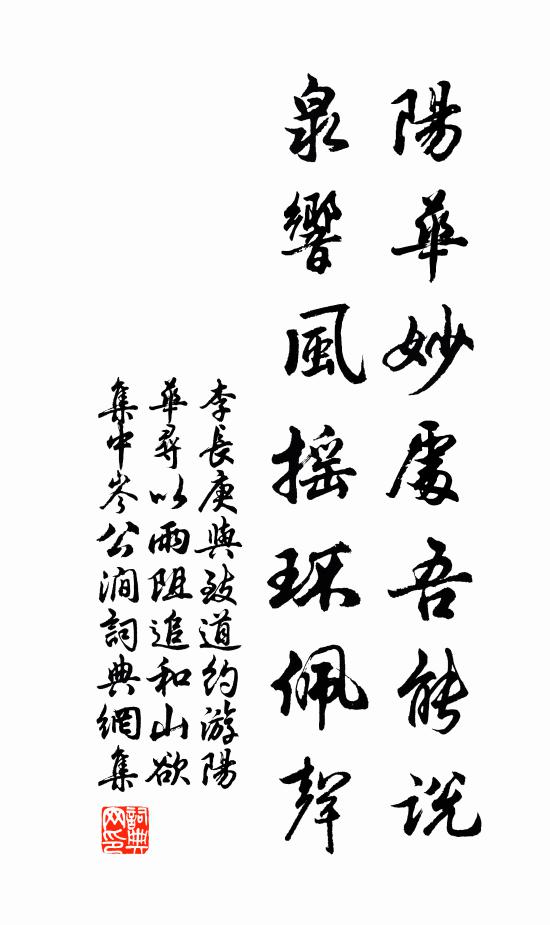 陽華妙處吾能説
泉響風摇环佩聲
李長庚與致道約游陽
華尋以雨阻追和山欲
集中岑公澗詞典網集
詞典
网印